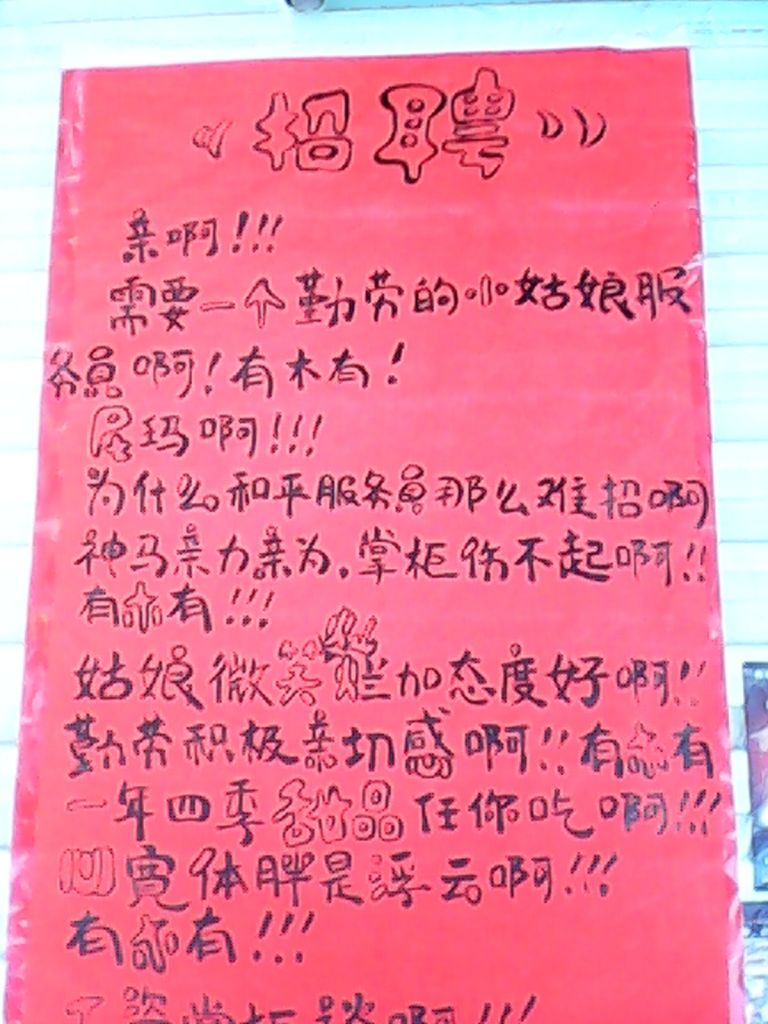 《招聘》
亲啊!!!
需要一个勤劳的小姑娘服
务员啊!有木有!
尼玛啊!!!
为什么和平服务员那么难招啊
神马亲力亲为,掌柜伤不起啊!!
有木有!!!
姑娘微笑灿烂加态度好啊!!
勤劳积极亲切感啊!!有木有
一年四季甜品任你吃啊!!!
心寛体胖是浮云啊!!!
有木有!!!
工资掌柜谈啊!!!